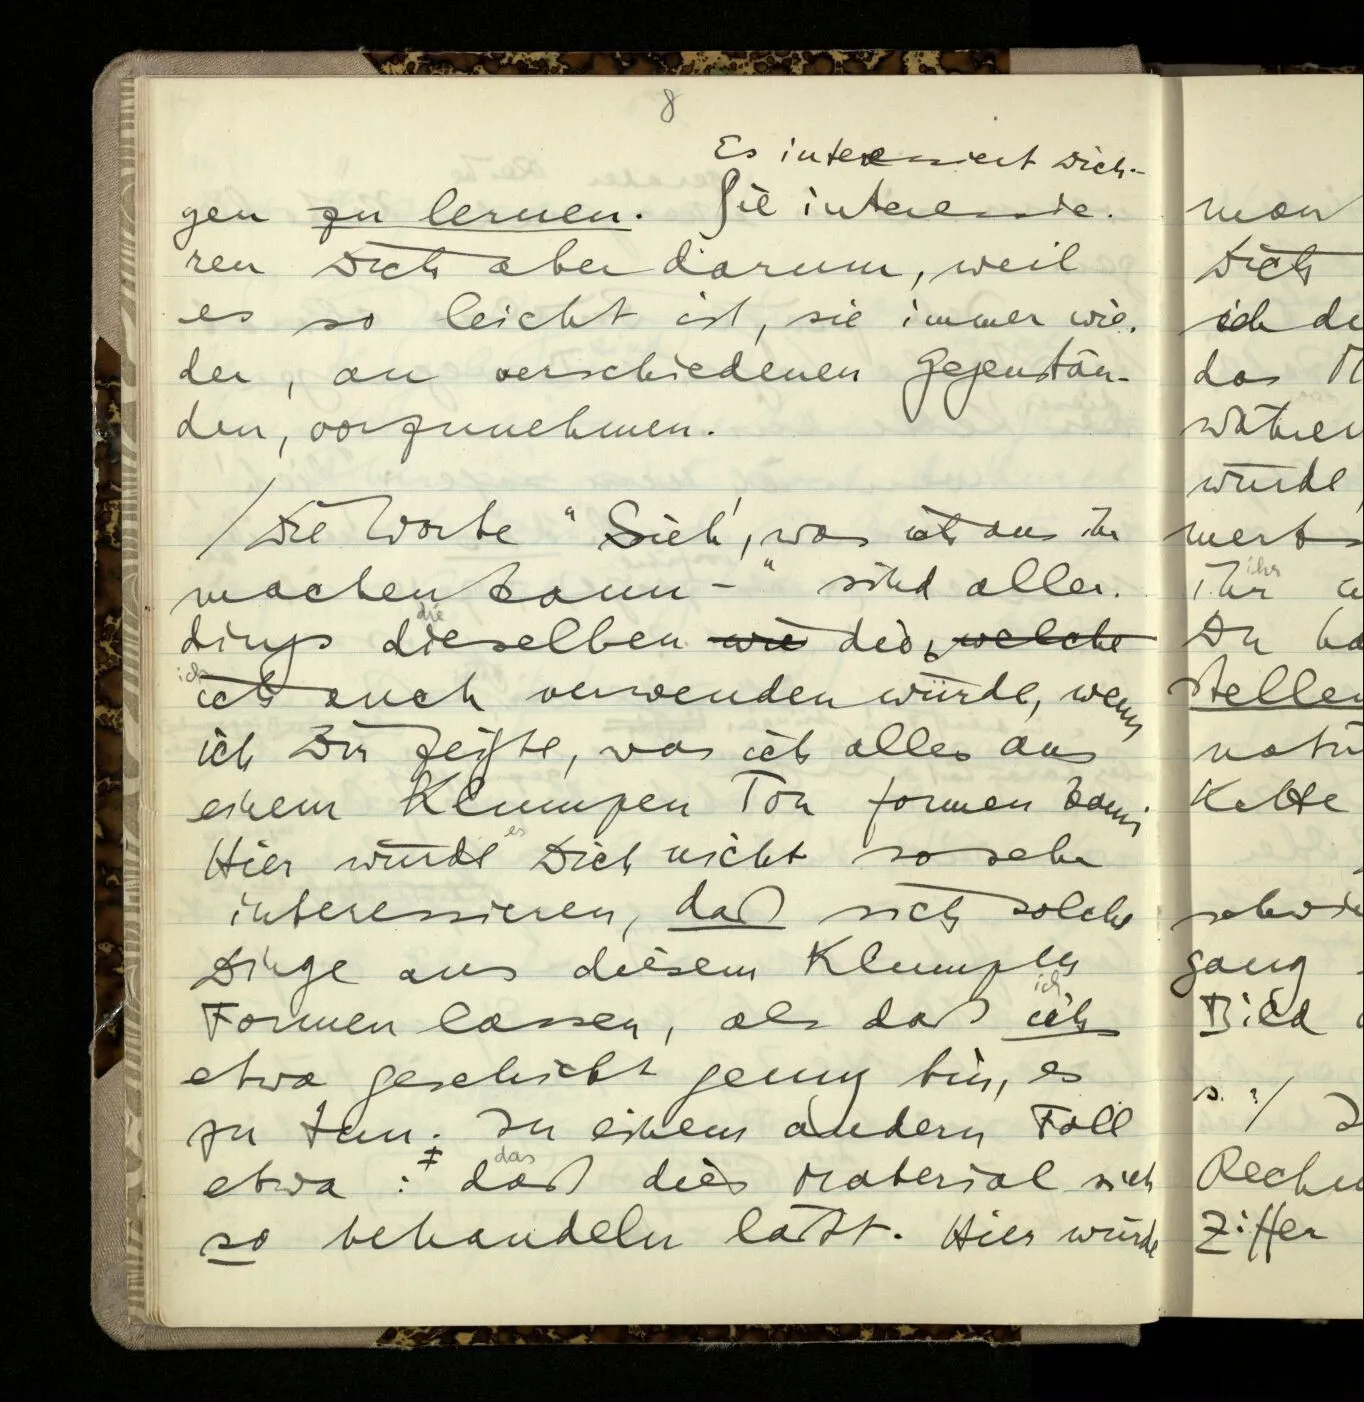 8
Es interessiert Dich-
gen zu lernen. Sie interessie.
ren Dich aber darum, weil
es so leicht ist, sie immer wie.
der, an verschiedenen Gegenstän-
den, vorzunehmen.
/ Die Worte "Sieh', was ich aus ihr
machen kann –" sind aller.
die
dings dieselben wie die, welche
ich
ich auch verwenden würde, wenn
ich Dir zeigte, was ich alles aus
einem Klumpen Ton formen kann.
es
Hier würde Dich nicht so sehr
interessieren, daß sich solche
Dinge aus diesem Klumpen
ich
Formen lassen, als daß ich
etwa geschickt genug bin, es
zu tun. In einem andern Fall
das
etwa : ‡ daß dies Material sich
so behandeln läßt. Hier würde
man
Dich
ich de
das M
würde
ihr
ihr a
Du ha
stellen
natü
Kette
gang
Bild
s. ?/
Rechn
Ziffer